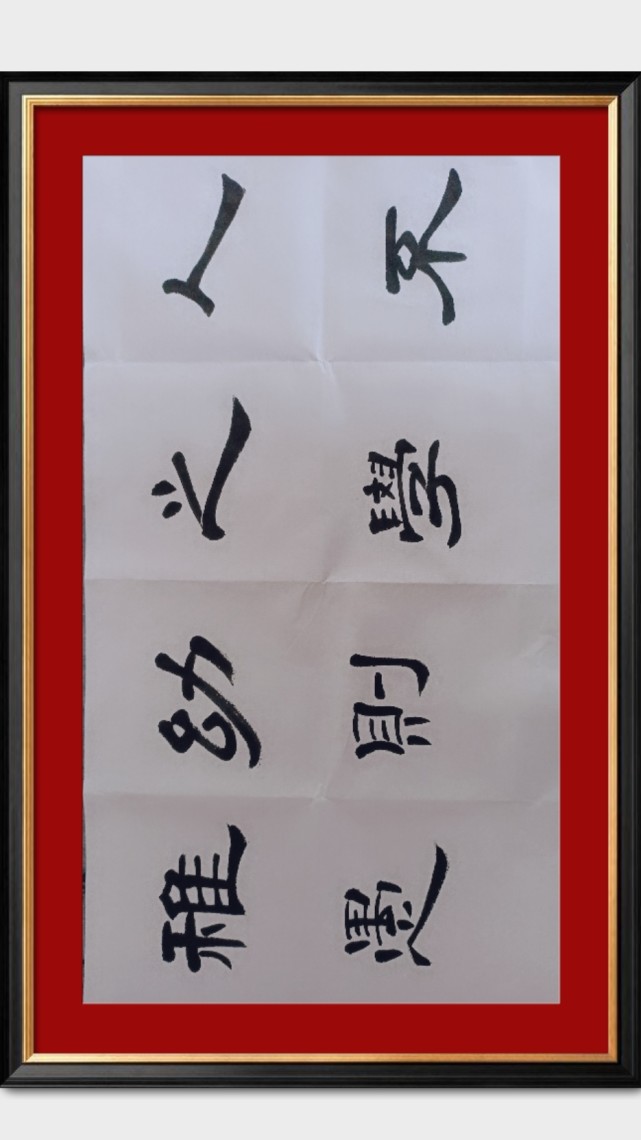 人之幼稚
不學則